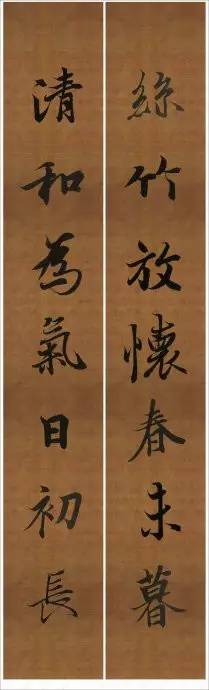 絲竹放懷春未暮
清和為氣日初長